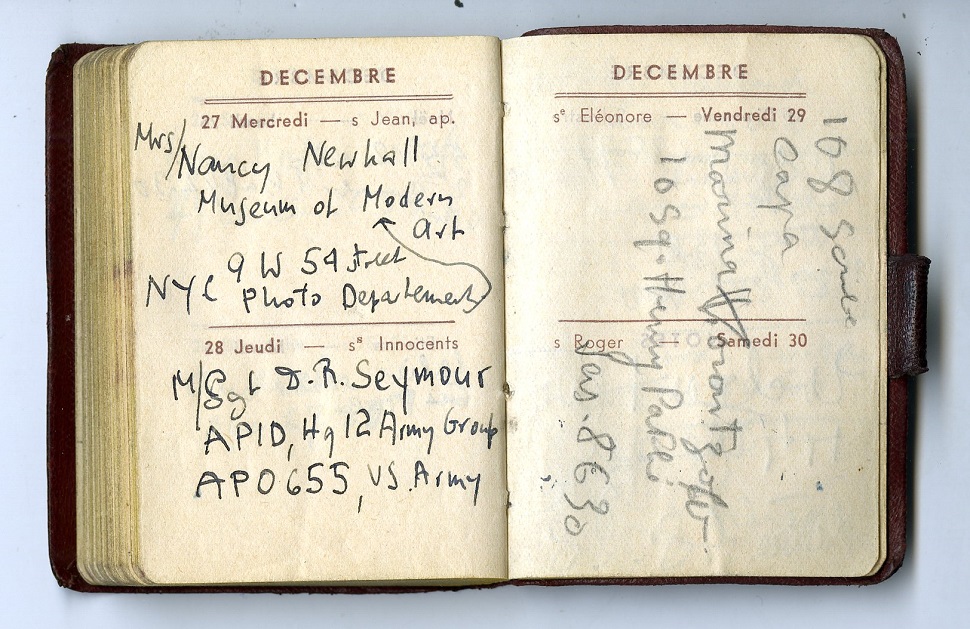 DECEMBRE
27 Mercredi — s Jean, ap.
Mrs/Nancy Newhall
Museum of Modern
Art
9 W 54 street
NYC Photo Departement
28 Jeudi — ss Innocents
M/Sgt D. R. Seymour
APID, Hq 12 Army Group
APO 655, US. Army
DECEMBRE
se Eléonore — Vendredi 29
s Roger — Samedi 30
108 Scribe
Capa
10 Sq. Henry Pathé
Jas. 8630